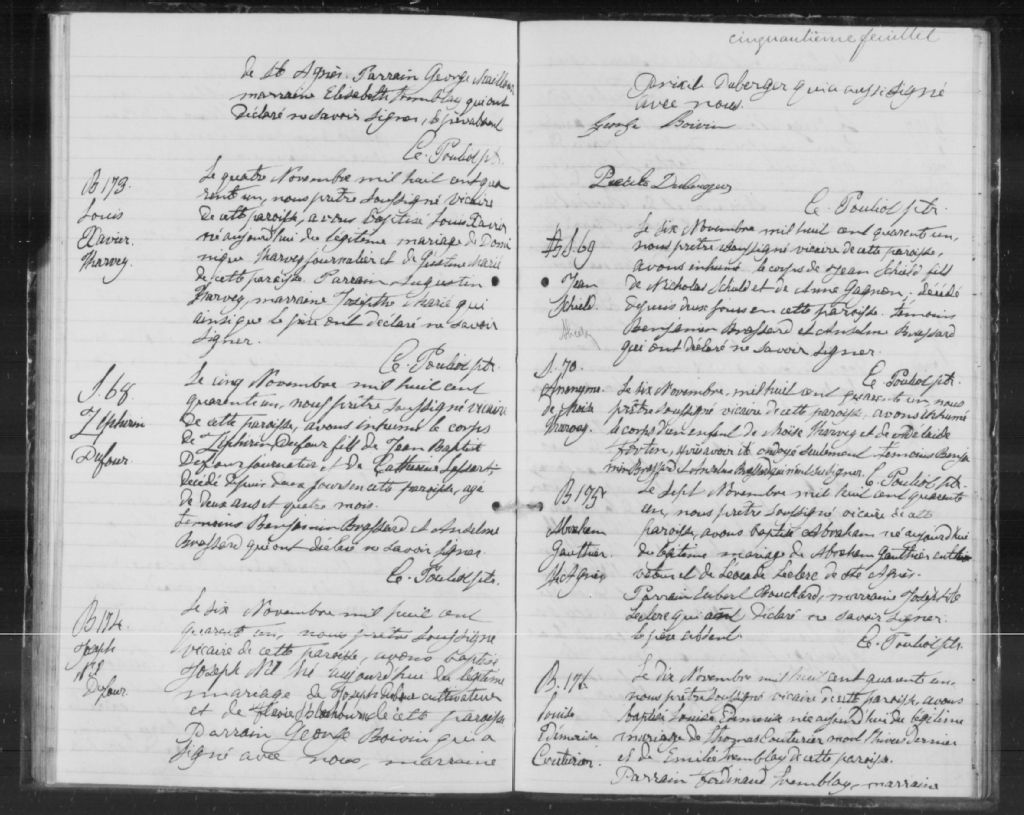 cinquantième feuillet
de Ste Agnès. Parrain George Maillou
marraine Elisabeth Tremblay qui ont
déclaré ne savoir signer, le père absent
C. Pouliot ptr.
B 173.
Louis
Xavier
Harvey.
Le quatre Novembre mil huit cent qua
rent un, nous prêtre soussigné vicaire
de cette paroisse, avons baptisé Louis Xavier
né aujourd'hui du légitime mariage de Domi
nique Harvey journalier et de Justine Marie
de cette paroisse. Parrain Augustin
Harvey, marraine Josephte Marie qui
ainsi que le père ont déclaré ne savoir
signer.
C. Pouliot ptr.
S. 68
Zéphirin
Dufour.
Le cinq Novembre mil huit cent
quarent un, nous prêtre soussigné vicaire
de cette paroisse, avons inhumé le corps
de Zéphirin Dufour fils de Jean Baptiste
Dufour journalier, et de Catherine
décédé depuis deux jours en cette paroisse, agé
de deux ans et quatre mois.
temoins Benjamin Brassard et Anselme
Brassard qui ont déclaré ne savoir signer.
C. Pouliot ptr.
B 174.
Joseph
Nil
Dufour.
Le six Novembre mil huit cent
quarent un, nous prêtre soussigné
vicaire de cette paroisse, avons baptisé
Joseph Nil né aujourd'hui du légitime
mariage de Joseph Dufour cultivateur
et de Flavie Blackburn de cette paroisse
Parrain George Boivin qui a
signé avec nous, marraine
Duberger qui a aussi signé
avec nous.
George Boivin
Duberger
C. Pouliot ptr.
S. 69
Jean
Schield.
Le six Novembre mil huit cent quarent un,
nous prêtre soussigné vicaire de cette paroisse,
avons inhumé le corps de Jean Schield fils
de Nicholas Schield et de Anne Gagnon, décédé
depuis deux jours en cette paroisse. temoins
Benjamin Brassard et Anselme Brassard
qui ont déclaré ne savoir signer.
C. Pouliot ptr.
S. 70.
Anonyme
de Moise
Harvey
Le six Novembre, mil huit cent quarent un, nous
prêtre soussigné vicaire de cette paroisse, avons inhumé
le corps d'un enfant de Moïse Harvey et de Adelaide
Fortin, ondoyé seulement temoins Benja
min Brassard et Anselme Brassard qui n'ont su signer.
C. Pouliot ptr.
B 175
Abraham
Gauthier
Ste Agnès
Le sept Novembre mil huit cent quarent
un, nous prêtre soussigné vicaire de cette
paroisse, avons baptisé Abraham né aujourd'hui
du légitime mariage de Abraham Gauthier culti
vateur et de Léocade Leclerc de Ste Agnès.
Parrain Hubert Bouchard, marraine Josephte
Leclerc qui ont déclaré ne savoir signer.
le père absent.
C. Pouliot ptr.
B. 176
Louise
Démerise
Couturier.
Le dix Novembre mil huit cent quarent un,
nous prêtre soussigné vicaire de cette paroisse, avons
baptisé Louise Démerise née aujourd'hui du légitime
mariage de Thomas Couturier mort l'hiver dernier
et de Emilie Tremblay de cette paroisse.
Parrain Ferdinand Tremblay, marraine